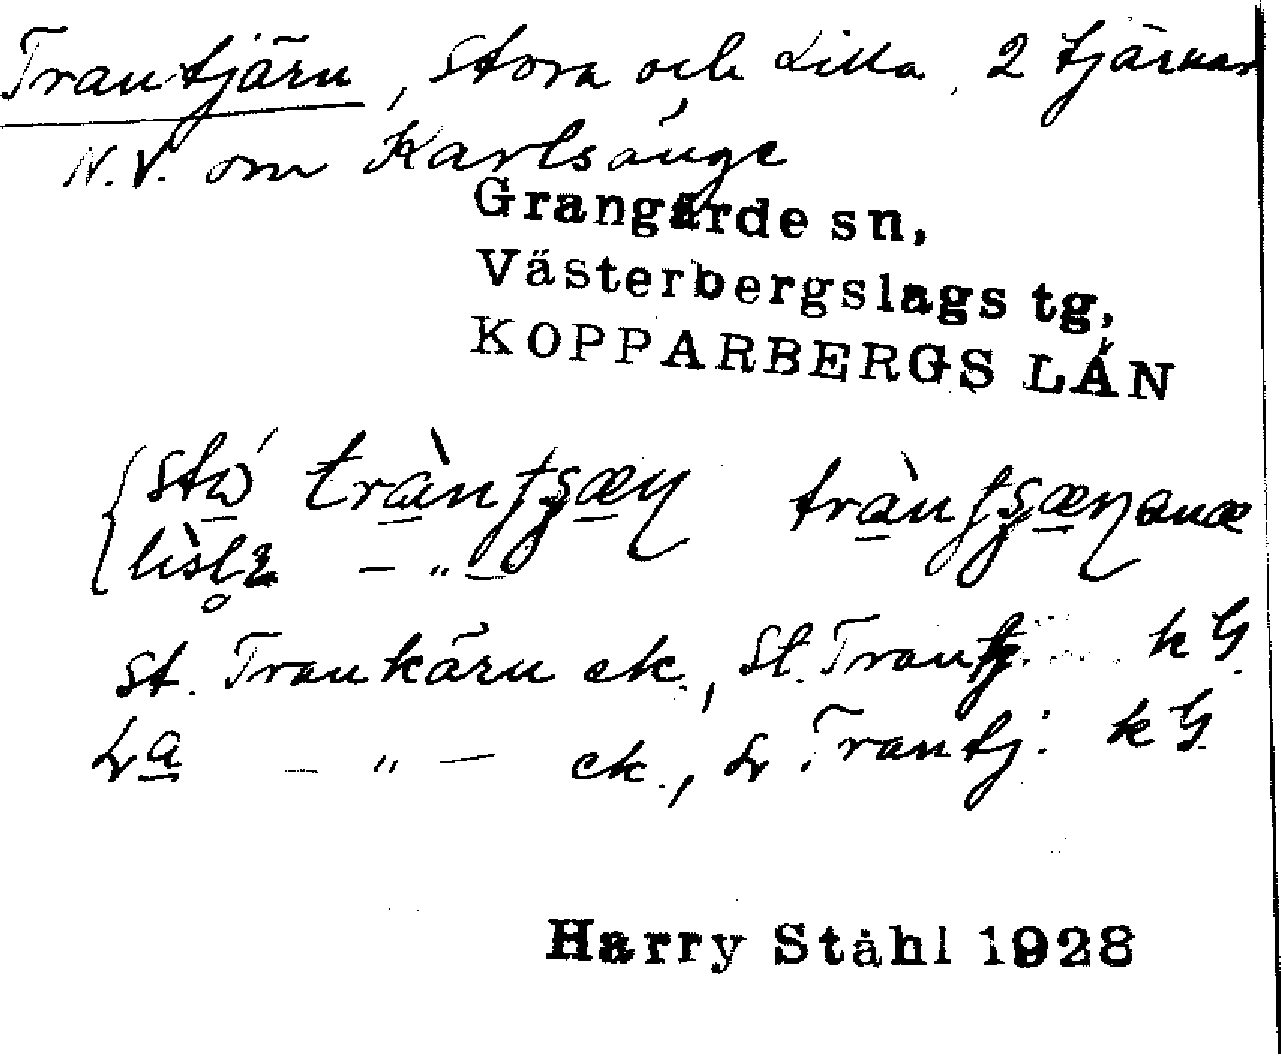 Trantjärn, Stora och Lilla, 2 tjärnar
N.V. om Karlsänge
Grangärde sn,
Västerbergslags tg,
KOPPARBERGS LÄN
St. Trankärn ek., St. Trantj. k G.
La — „ — ek., L. Trantj. k G.
Harry Ståhl 1928